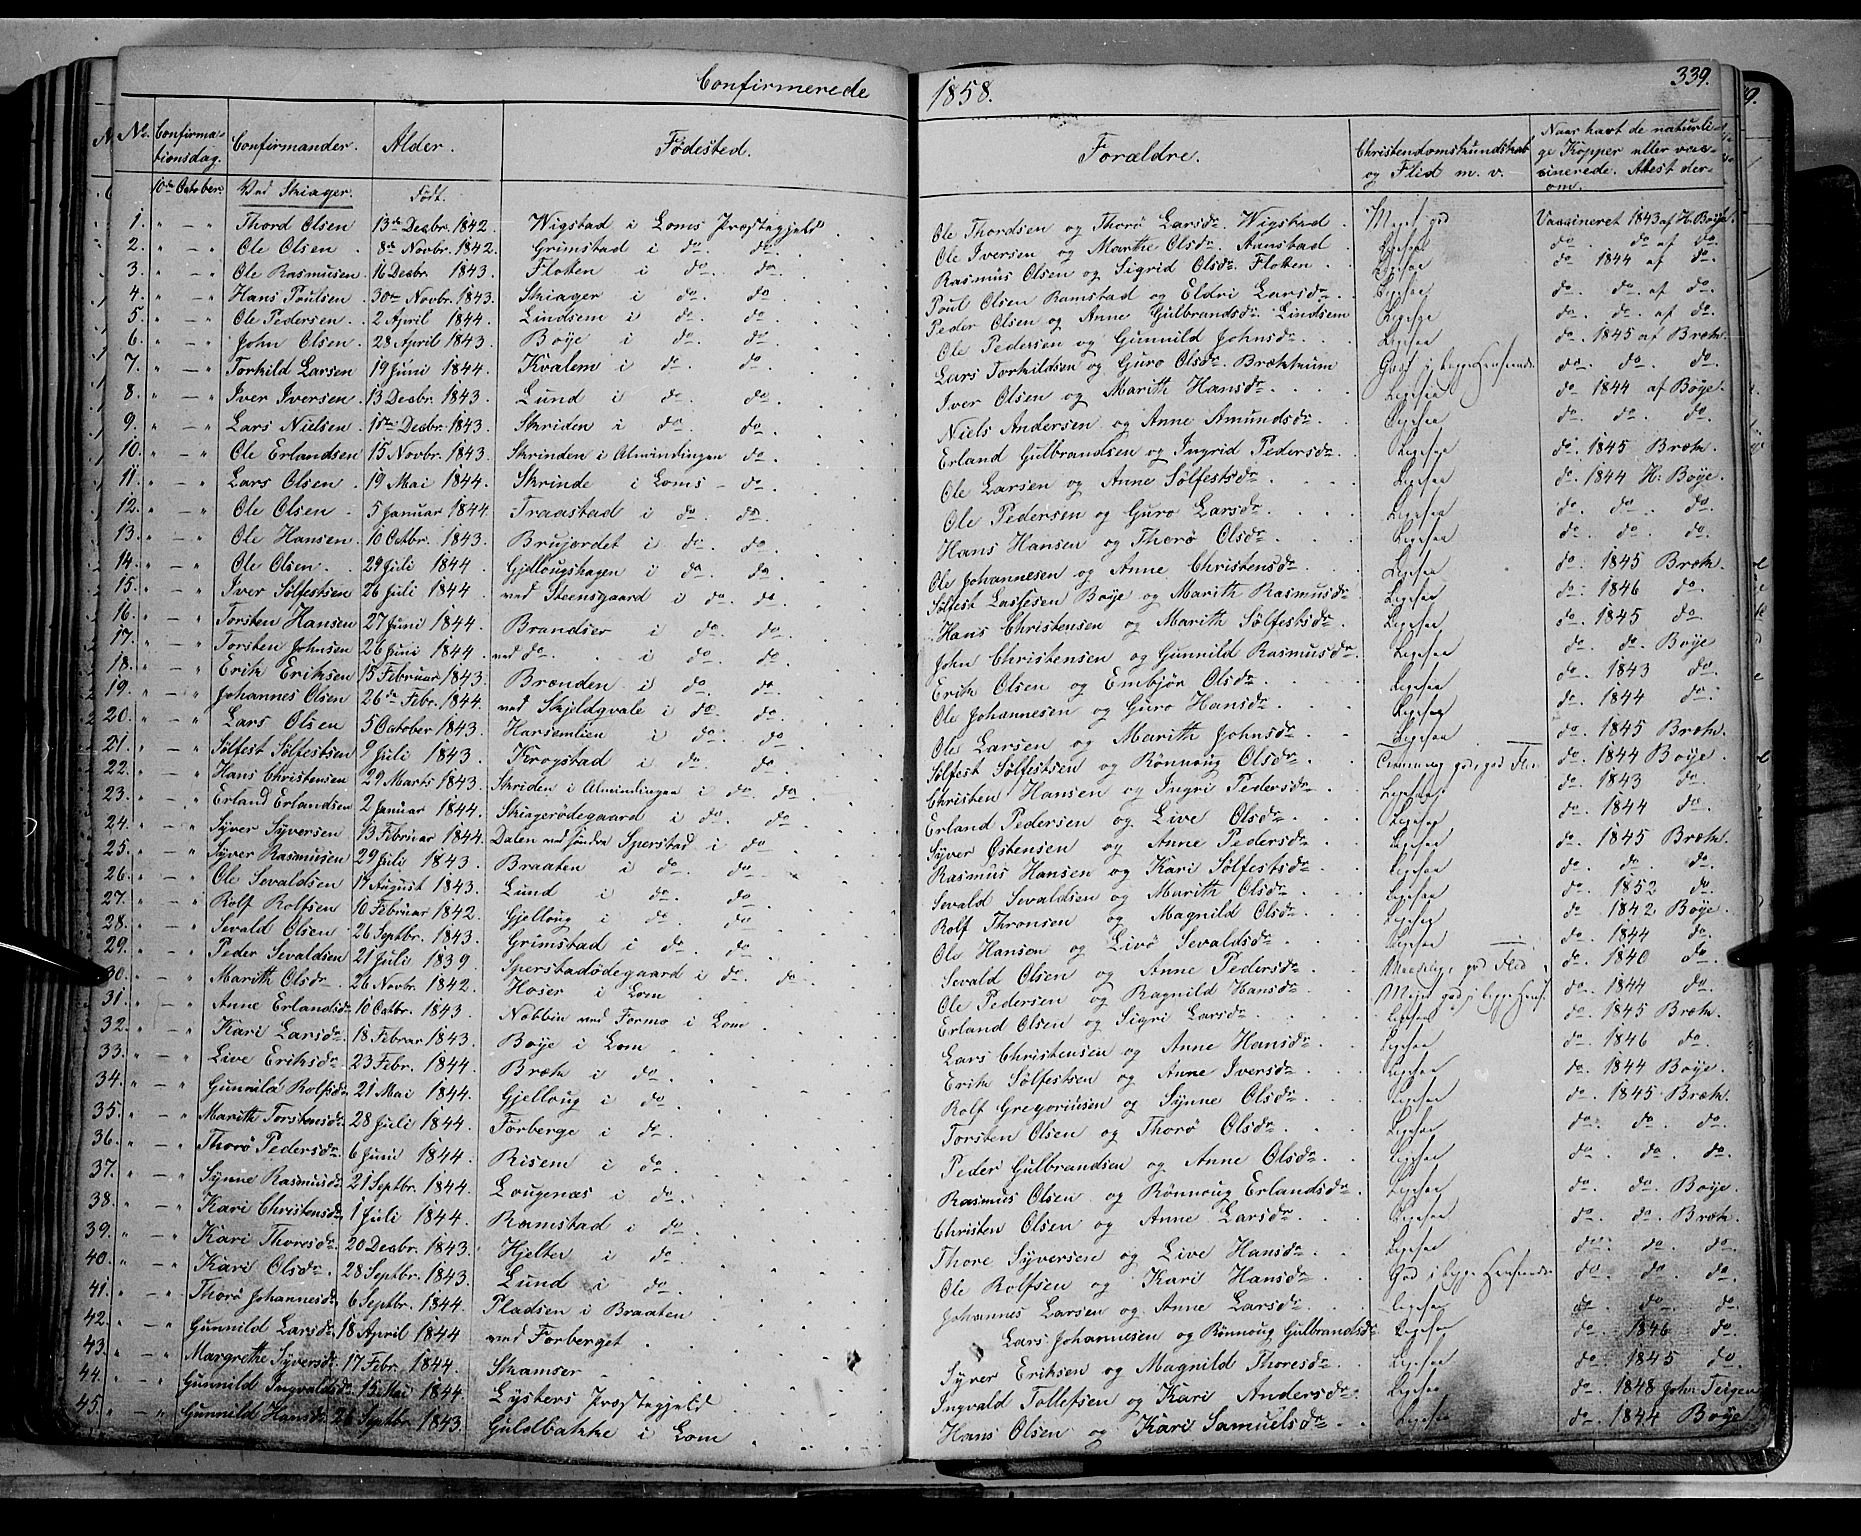 Confirmerede 1858. 339.
No. Confirmationsdag. Confirmander. Alder. Fødested. Forældre. Christendomskundskab og Flid m. v. Naar havt de naturlige Kopper eller vaccinerede. Attest derom.
10de October. Ved Skiager. Født.
1. " - " Thord Olsen 13de Decbr. 1842. Wigstad i Loms Præstegjeld. Ole Thordsen og Thorø Larsdr. Wigstad Meget god Vaccineret 1843 af H. Boye.
2. " - " Ole Olsen 8de Novbr. 1842. Grimstad i do. do. Ole Iversen og Marthe Olsdr. Aunstad Ligesaa do. do. af do.
3. " - " Ole Rasmusen 16 Decbr. 1843. Flotten i do. do. Rasmus Olsen og Sigrid Olsdr. Flotten Ligesaa do. 1844 af do.
4. " - " Hans Poulsen 30te Novbr. 1843. Skiager i do. do. Poul Olsen Ramstad og Eldri Larsdr. Ligesaa do. do. af do.
5. " - " Ole Pedersen 2 April 1844. Lindsem i do. do. Peder Olsen og Anne Gulbrandsdr. Lindsem Ligesaa do. do. af do.
6. " - " John Olsen 28 April 1843. Boye i do. do. Ole Pedersen og Gunnild Johnsdr. Ligesaa do. 1845 af Bræk.
7. " - " Torkild Larsen 19 Juni 1844. Kvalem i do. do. Lars Torkildsen og Guro Olsdr. Brækkum God i begge Hensende do. do. do.
8. " - " Iver Iversen 13 Decbr. 1843. Lund i do. do. Iver Olsen og Marith Hansdr. Ligesaa do. 1844 af Boye.
9. " - " Lars Nielsen 15de Decbr. 1843. Skriden i do. do. Niels Andersen og Anne Amundsdr. Ligesaa do. do. do.
10. " - " Ole Erlandsen 15 Novbr. 1843. Skrinden i Almindingen do. Erland Gulbrandsen og Ingrid Pedersdr. Ligesaa do. 1845 Bræk.
11. " - " Lars Olsen 19 Mai 1844. Skrinde i Loms - do. Ole Larsen og Anne Sølfestsdr. Ligesaa do. 1844 H. Boye.
12. " - " Ole Olsen 5 Januar 1844. Traastad i do. do. Ole Pedersen og Guro Larsdr. Ligesaa do. do. do.
13. " - " Ole Hansen 10 Octbr. 1843. Brujordet i do. do. Hans Hansen og Thorø Olsdr. Ligesaa do. do. do.
14. " - " Ole Olsen 29 Juli 1844. Gjellougshagen i do. do. Ole Johannesen og Anne Christensdr. Ligesaa do. 1845 Bræk.
15. " - " Iver Sølfestsen 26 Juli 1844 ved Steensgaard i do. do. Sølfest Lassesen Boye og Marith Rasmusdr. Ligesaa do. 1846 do.
16. " - " Torsten Hansen 27 Juni 1844. Brandser i do. do. Hans Christensen og Marith Sølfestsdr. Ligesaa do. 1845 do.
17. " - " Torsten Johnsen 26 Juni 1844. ved do. i do. do. John Christensen og Gunnild Rasmusdr. Ligesaa do. do. Boye
18. " - " Erik Eriksen 15 Februar 1843. Brænden i do. do. Erik Olsen og Embjør Olsdr. Ligesaa do. 1843 do.
19. " - " Johannes Olsen 26de Febr. 1844. ved Skjeldqvale i do. do. Ole Johannesen og Guro Hansdr. Ligesaa do. 1844 do.
20. " - " Lars Olsen 5 October 1843. Harsemlien i do. do. Ole Larsen og Marith Johnsdr. Ligesaa do. 1845 Bræk.
21. " - " Sølfest Sølfestsen 9 Juli 1843. Krogstad i do. do. Sølfest Sølfestsen og Rønnoug Olsdr. Temmelig god, god Flid do. 1844 Boye.
22. " - " Hans Christensen 29 Marts 1843. Skriden i Almindingen i do. do. Christen Hansen og Ingri Pedersdr. Ligesaa do. 1843 do.
23. " - " Erland Erlandsen 2 Januar 1844. Skiagerødegaard i do. do. Erland Pedersen og Live Olsdr. Ligesaa do. 1844 do.
24. " - " Syver Syversen 13 Februar 1844. Dalen ved søndre Sperstad i do. Syver Østensen og Anne Pedersdr. Ligesaa do. 1845 Bræk.
25. " - " Syver Rasmusen 29 Juli 1843. Braaten i do. do. Rasmus Hansen og Kari Sølfestsdr. Ligesaa do. do. do.
26. " - " Ole Sevaldsen 17 August 1843. Lund i do. do. Sevald Sevaldsen og Marith Olsdr. Ligesaa do. 1852 do.
27. " - " Rolf Rolfsen 16 Februar 1842. Gjelloug i do. do. Rolf Thronsen og Magnild Olsdr. Ligesaa do. 1842 Boye.
28. " - " Sevald Olsen 26 Septbr. 1843. Grimstad i do. do. Ole Hansen og Livø Sevaldsdr. Ligesaa do. 1844 do.
29. " - " Peder Sevaldsen 21 Juli 1839. Sperstadødegaard i do. do. Sevald Olsen og Anne Pedersdr. Maadelig, god Flid do. 1840 do.
30. " - " Marith Olsdr. 26 Novbr. 1842. Hoser i Lom Ole Pedersen og Ragnild Hansdr. Meget god i begge Hens. do. 1844 do.
31. " - " Anne Erlandsdr. 10 Octbr. 1843. Nøbbin ved Formo i Lom Erland Olsen og Sigri Larsdr. Ligesaa do. 1845 Bræk.
32. " - " Kari Larsdr. 18 Februar 1843. Boye i Lom Lars Christensen og Anne Hansdr. Ligesaa do. 1846 do.
33. " - " Live Eriksdr. 23 Febr. 1844. Bræk i do. Erik Sølfestsen og Anne Iversdr. Ligesaa do. 1844 Boye.
34. " - " Gunnild Rolfsdr. 21 Mai 1844. Gjelloug i do. Rolf Gregoriusen og Synne Olsdr. Ligesaa do. 1845 Bræk.
35. " - " Marith Torstensdr. 28 Juli 1844. Forberge i do. Torsten Olsen og Thorø Olsdr. Ligesaa do. do. do.
36. " - " Thorø Pedersdr. 6 Juni 1844. Risem i do. Peder Gulbrandsen og Anne Olsdr. Ligesaa do. do. do.
37. " - " Synne Rasmusdr. 21 Septbr. 1844. Lougenæs i do. Rasmus Olsen og Rønnoug Erlandsdr. Ligesaa do. do. Boye.
38. " - " Kari Christensdr. 1 Juli 1844. Ramstad i do. Christen Olsen og Anne Larsdr. Ligesaa do. do. Bræk.
39. " - " Kari Thoresdr. 20 Decbr. 1843. Hjelter i do. Thore Syversen og Live Hansdr. Ligesaa do. do. do.
40. " - " Kari Olsdr. 28 Septbr. 1843. Lund i do. Ole Rolfsen og Kari Hansdr. God i begge Hensende do. do. do.
41. " - " Thorø Johannesdr. 6 Septbr. 1844. Pladsen i Braaten Johannes Larsen og Anne Larsdr. Ligesaa do. do. do.
42. " - " Gunnild Larsdr. 18 April 1844 ved Forberget Lars Johannesen og Rønnoug Gulbrandsdr. Ligesaa do. 1846 do.
43. " - " Margrethe Syversdr. 17 Febr. 1844. Skamser Syver Eriksen og Magnild Thoresdr. Ligesaa do. 1845 do.
44. " - " Gunnild Ingvaldsdr. 15 Mai 1844. Lysters Præstegjeld Ingvald Tollefsen og Kari Andersdr. Ligesaa do. 1848 John Teigen
45. " - " Gunnild Hansdr. 26 Septbr. 1843. Guldbakke i Lom Hans Olsen og Kari Samuelsdr. Ligesaa do. 1844 Boye